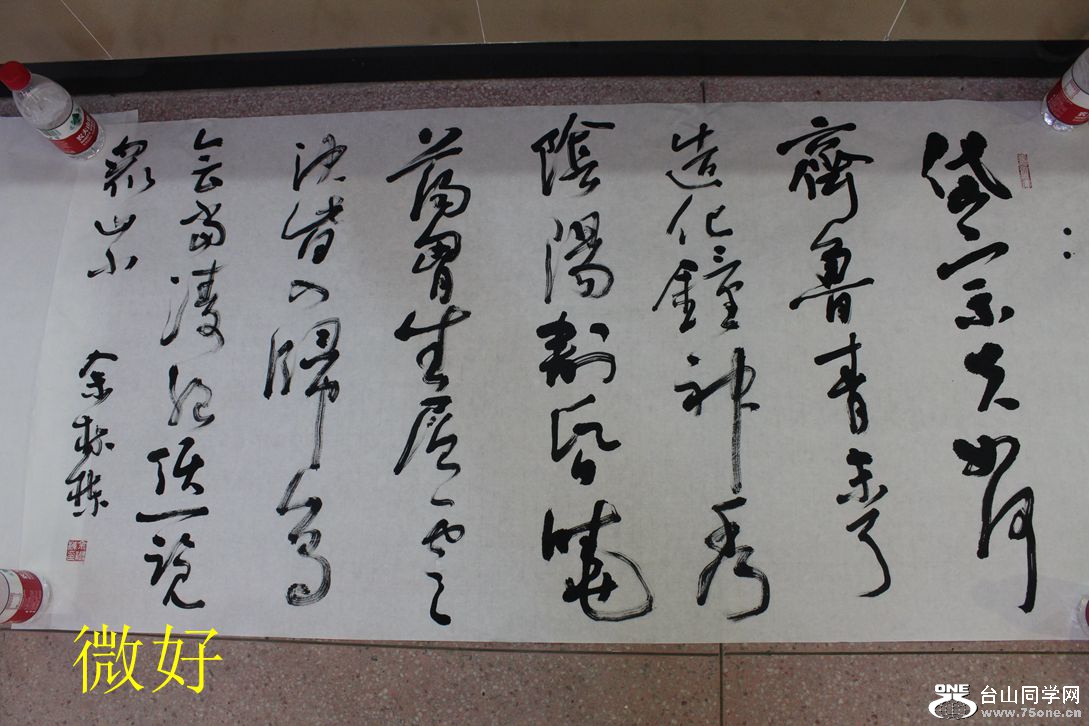 岱宗夫如何
齊魯青未了
造化鐘神秀
陰陽割昏曉
蕩胷生層云
決眥入歸鳥
会當凌絕頂一覽
衆山小
余
微好
ONE
台山同学网
www.75one.cn